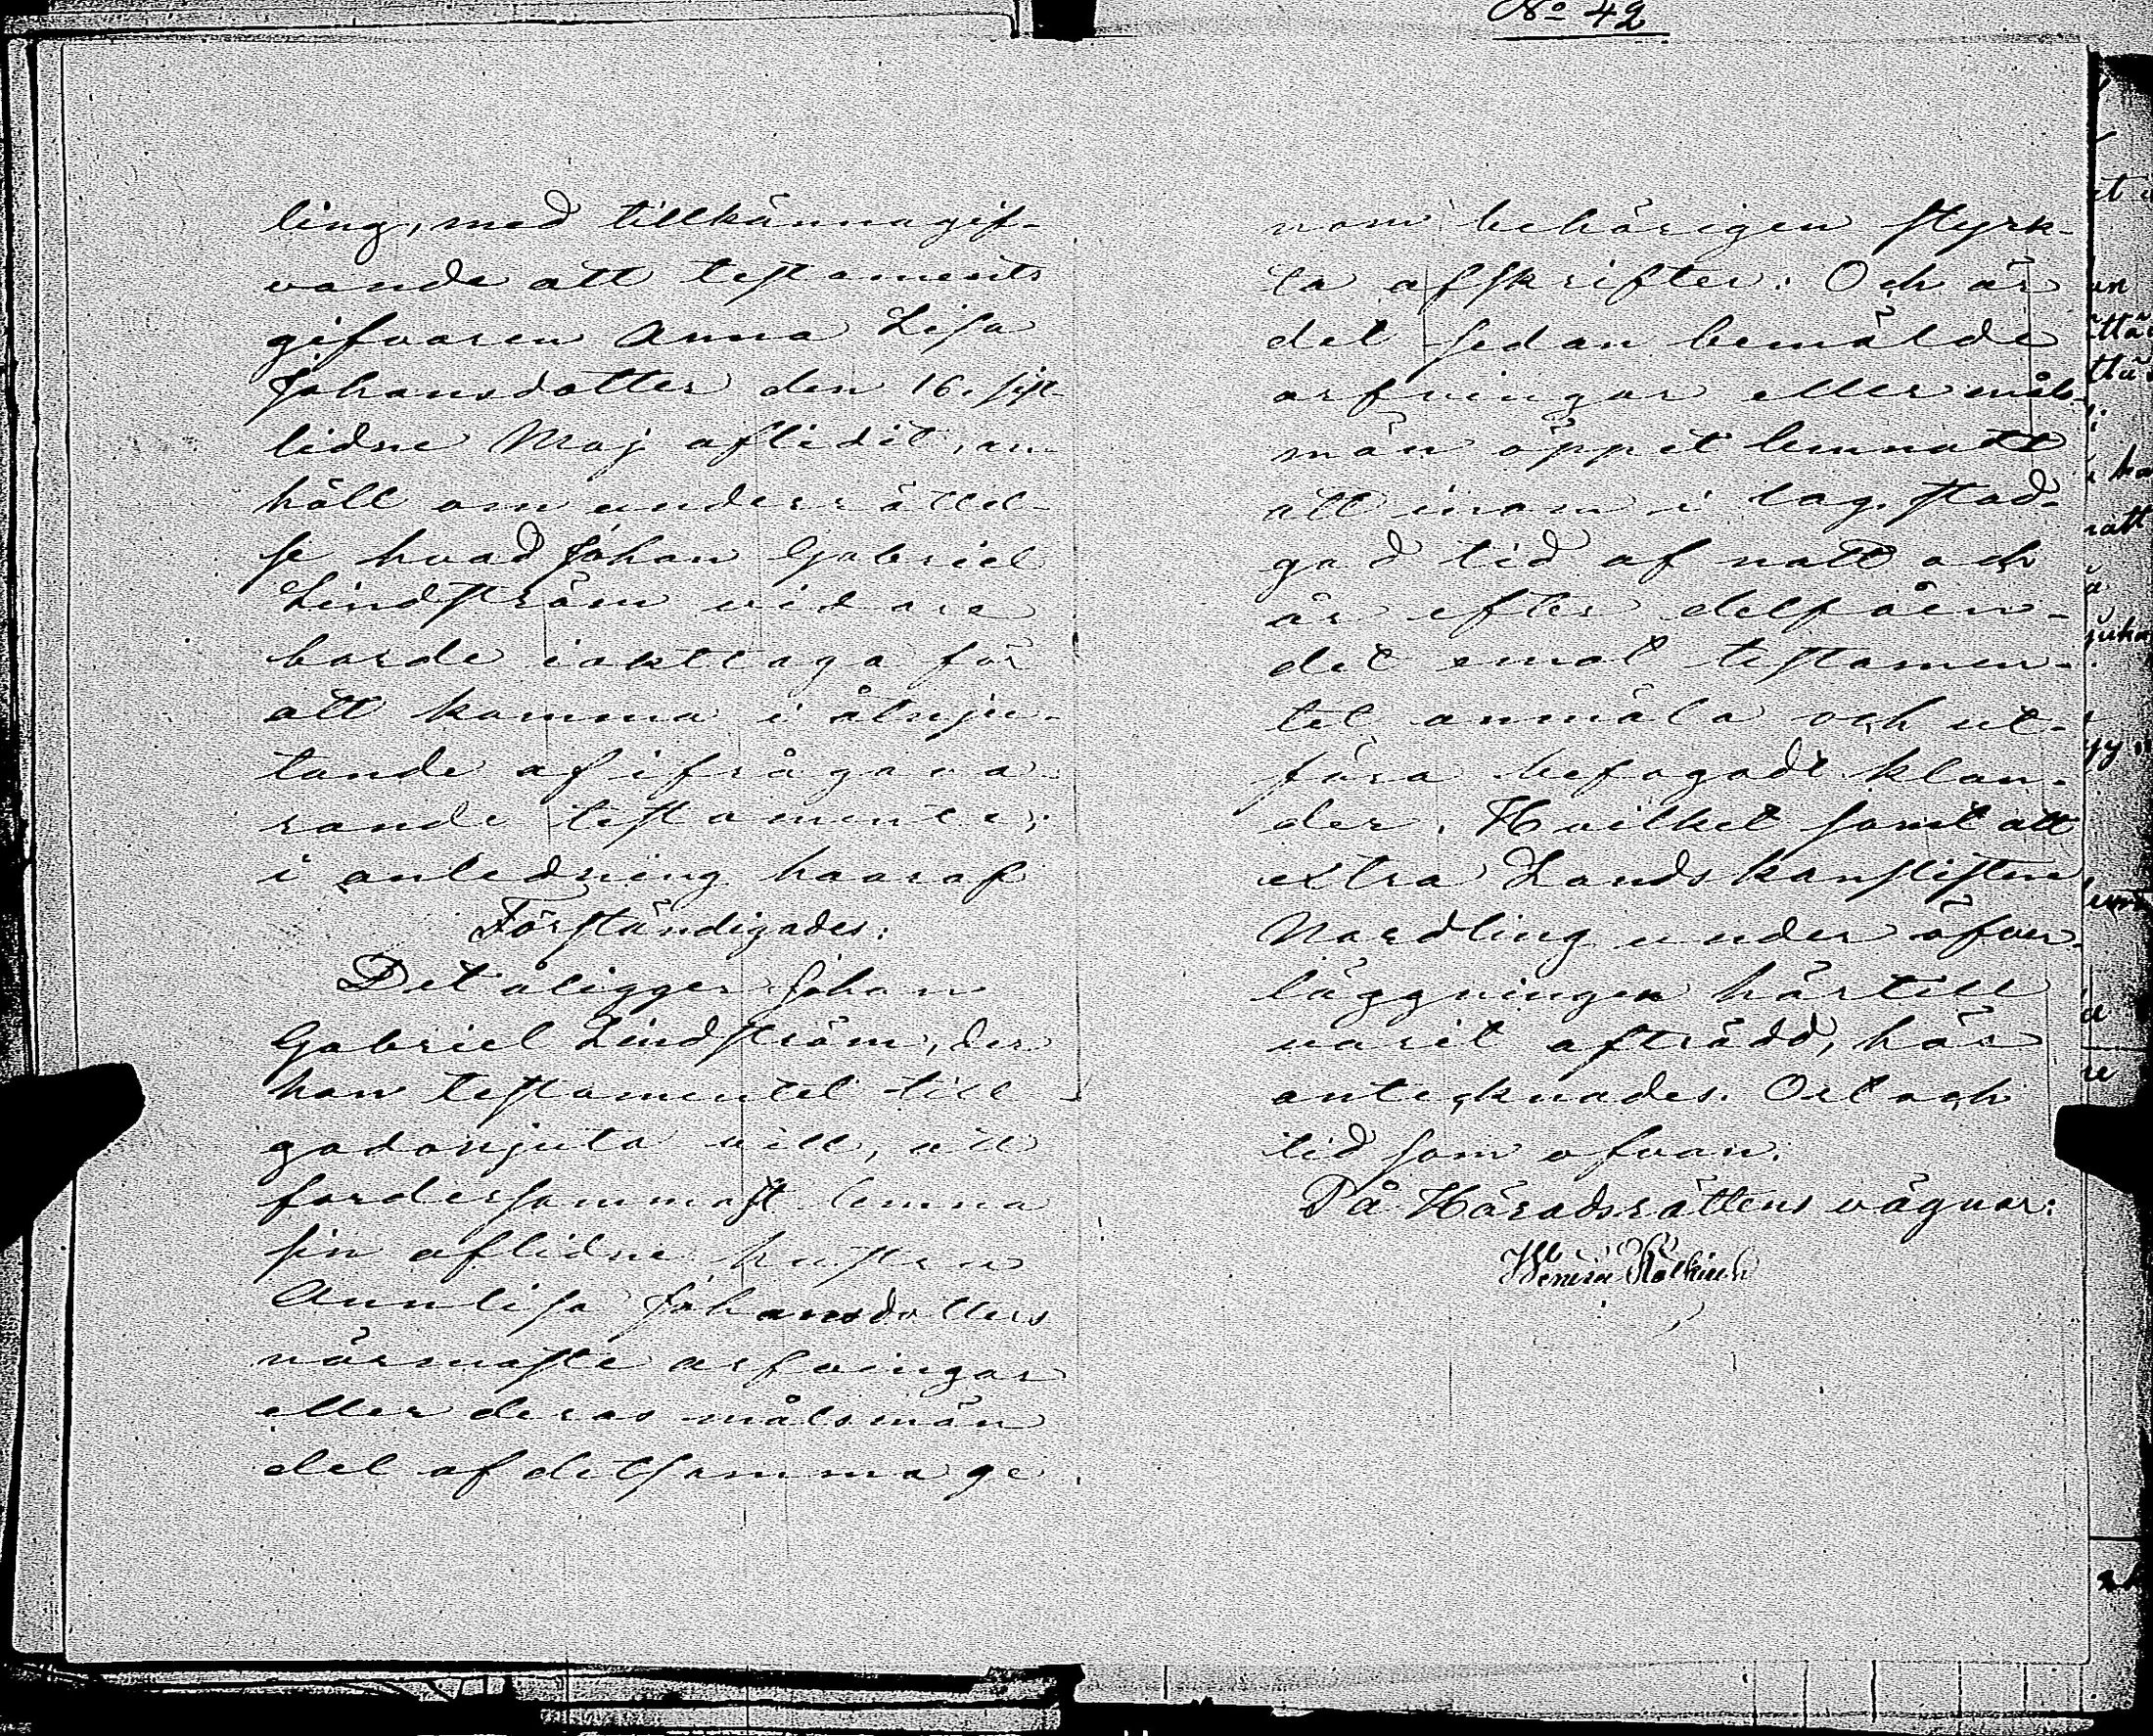 No 42
ling, med tillkännagif-
vande att testaments
gifvaren Anna Lisa
Johansdotter den 16. sist-
lidne Maj aflidit, an-
höll om underrättel-
se hvad Johan Gabriel
Lindström vidare
borde iakttaga för
att komma i åtnju-
tande af ifrågava-
rande testamente;
i anledning hvaraf
Förständigades:
Det åligger Johan
Gabriel Lindström, der
han testamentet till
godonjuta vill, att
fordersammast lemna
sin aflidne hustru
Annlisa Johansdotters
närmaste arfvingar
eller deras målsmän
del af detsamma ge
nom behörigen styrk-
ta afskrifter. Och är
det sedan bemälde
arfvingar eller måls-
män öppet lemnadt
att inom i lag stad-
gad tid af natt och
år efter delfåen-
det emot testamen-
tet anmäla och ut-
föra befogadt klan-
der. Hvilket samt att
extra Landskanslisten
Nordling under öfver-
läggningen härtill
varit afträdd, här
antecknades. Ort och
tid som ofvan.
På Häradsrättens vägnar: